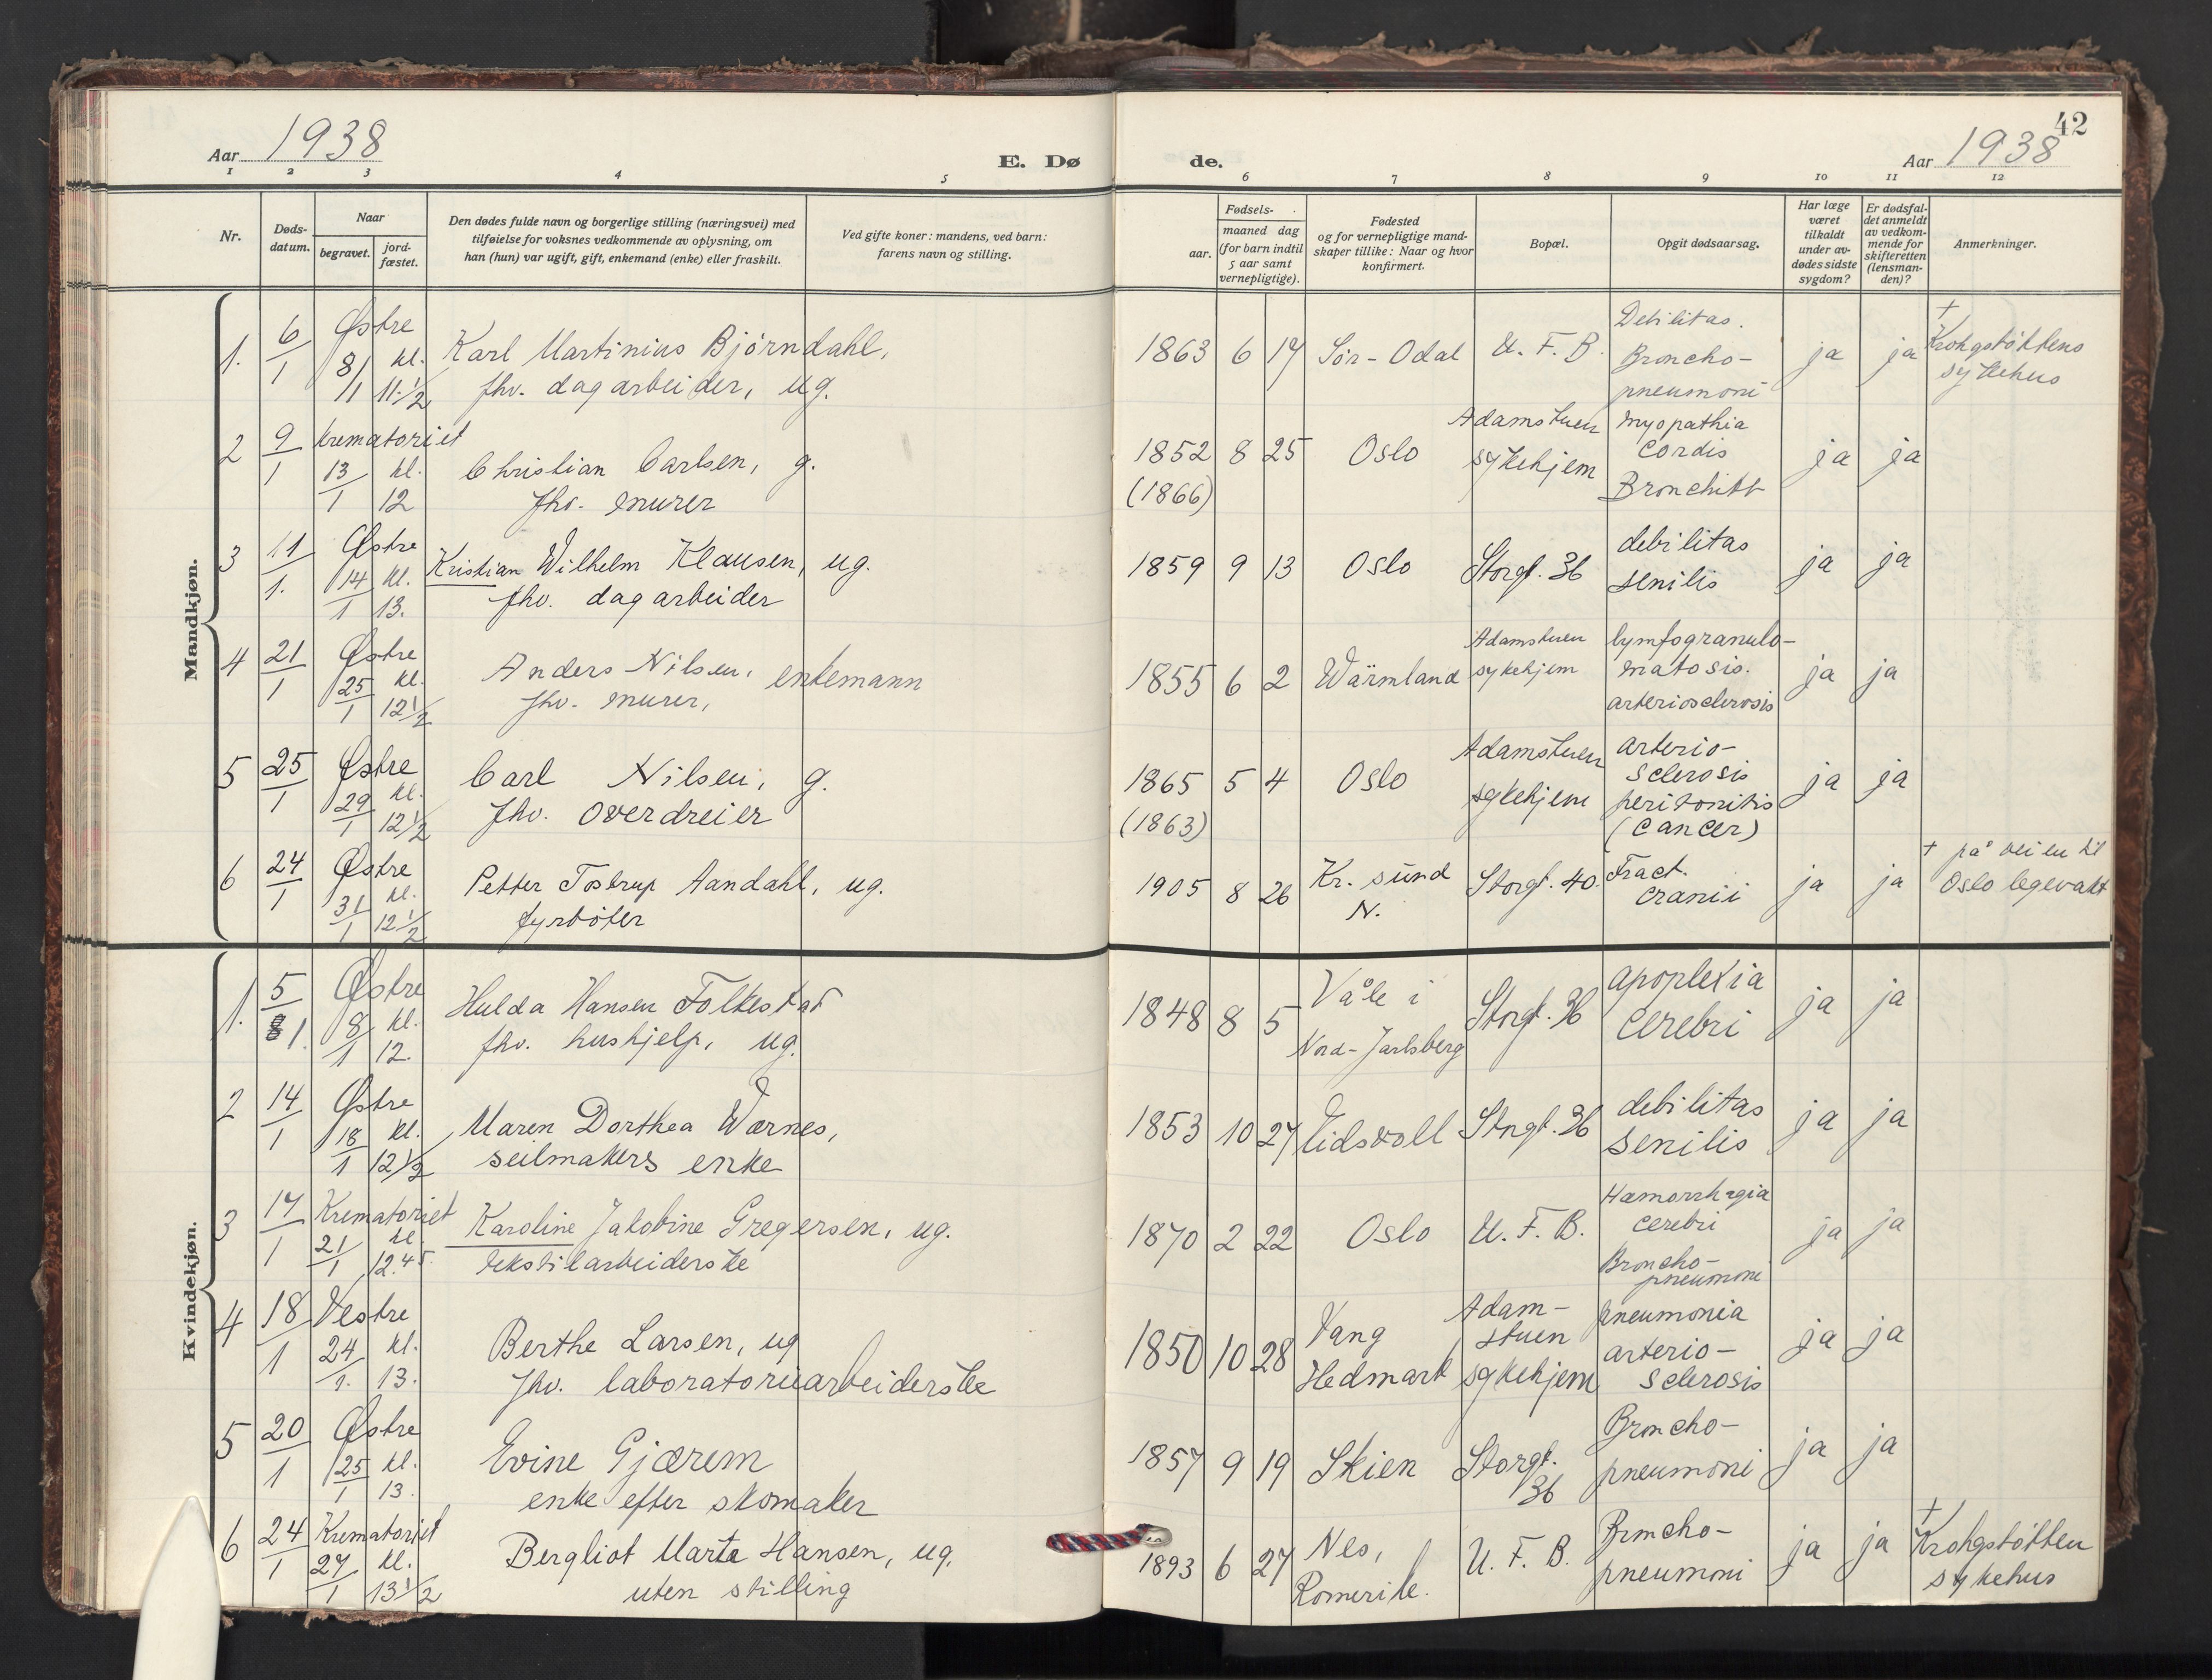 42
Aar 1938
E. Dø
de.
Aar 1938
1 2 3 4 5
6 7 8 9 10 11 12
Nr.
Døds-
datum.
Naar
begravet.
jord-
fæstet.
Den dødes fulde navn og borgerlige stilling (næringsvei) med
tilføielse for voksnes vedkommende av oplysning, om
han (hun) var ugift, gift, enkemand (enke) eller fraskilt.
Ved gifte koner: mandens, ved barn:
farens navn og stilling.
Fødsels-
aar.
maaned dag
(for barn indtil
5 aar samt
vernepligtige).
Fødested
og for vernepligtige mand-
skaper tillike: Naar og hvor
konfirmert.
Bopæl.
Opgit dødsaarsag.
Har læge
været
tilkaldt
under av-
dødes sidste
sygdom?
Er dødsfal-
det anmeldt
av vedkom-
mende for
skifteretten
(lensman-
den)?
Anmerkninger.
Mandkjøn.
1. 6/1 Østre 8/1 kl. 11 1/2
Karl Martinius Bjørndahl,
fhv. dagarbeider, ug.
1863 6 17 Sør-Odal U. F. B.
Debilitas.
Broncho-
pneumoni
ja ja
† Krohgstøttens
sykehus
2 9/1 Krematoriet 13/1 kl. 12
Christian Carlsen, g.
fhv. murer
1852 8 25 Oslo
(1866)
Adamstuen
sykehjem
myopathia
cordis
Bronchitt
ja ja
3 11/1. Østre 14/1 kl. 13.
Kristian Wilhelm Klausen, ug.
fhv. dagarbeider
1859 9 13 Oslo Storgt. 36
debilitas
senilis
ja ja
4 21/1 Østre 25/1 kl. 12 1/2
Anders Nilsen, enkemann
fhv. murer,
1855 6 2 Wärmland
Adamstuen
sykehjem
lymfogranulo-
matosis.
arteriosclerosis
ja ja
5 25/1 Østre 29/1 kl. 12 1/2
Carl Nilsen, g.
fhv. overdreier
1865 5 4 Oslo
(1863)
Adamstuen
sykehjem
arterio-
sclerosis
peritonitis
(cancer)
ja ja
6 24/1 Østre 31/1 kl. 12 1/2
Petter Tostrup Aandahl, ug.
fyrbøter
1905 8 26 Kr. sund
N.
Storgt. 40.
Fract.
cranii
ja ja
† på veien til
Oslo legevakt
Kvindekjøn.
1. 5/1. Østre 8/1 kl. 12.
Hulda Hansen Folkestad
fhv. hushjelp, ug.
1848 8 5 Våle i
Nord-Jarlsberg
Storgt. 36
apoplexia
cerebri
ja ja
2 14/1 Østre 18/1 kl. 12 1/2
Maren Dorthea Wærnes,
seilmakers enke
1853 10 27 Eidsvoll Storgt. 36
debilitas
senilis
ja ja
3 17/1 Krematoriet 21/1 kl 12.45.
Karoline Jakobine Gregersen, ug.
tekstilarbeiderske
1870 2 22 Oslo U. F. B.
Hæmorrhagia
cerebri
Broncho-
pneumoni
ja ja
4 18/1 Vestre 24/1. kl. 13.
Berthe Larsen, ug
fhv. laboratoriearbeiderske
1850 10 28 Vang
Hedmark
Adam-
stuen
sykehjem
pneumonia
arterio-
sclerosis
ja ja
5 20/1 Østre 25/1 kl. 13.
Evine Gjærem
enke efter skomaker
1857 9 19 Skien Storgt.
36
Broncho-
pneumoni
ja ja
6 24/1 Krematoriet 27/1 kl. 13 1/2
Bergliot Marta Hansen, ug.
uten stilling
1893 6 27 Nes,
Romerike.
U. F. B.
Broncho-
pneumoni
ja ja
† Krohgstøtten
sykehus